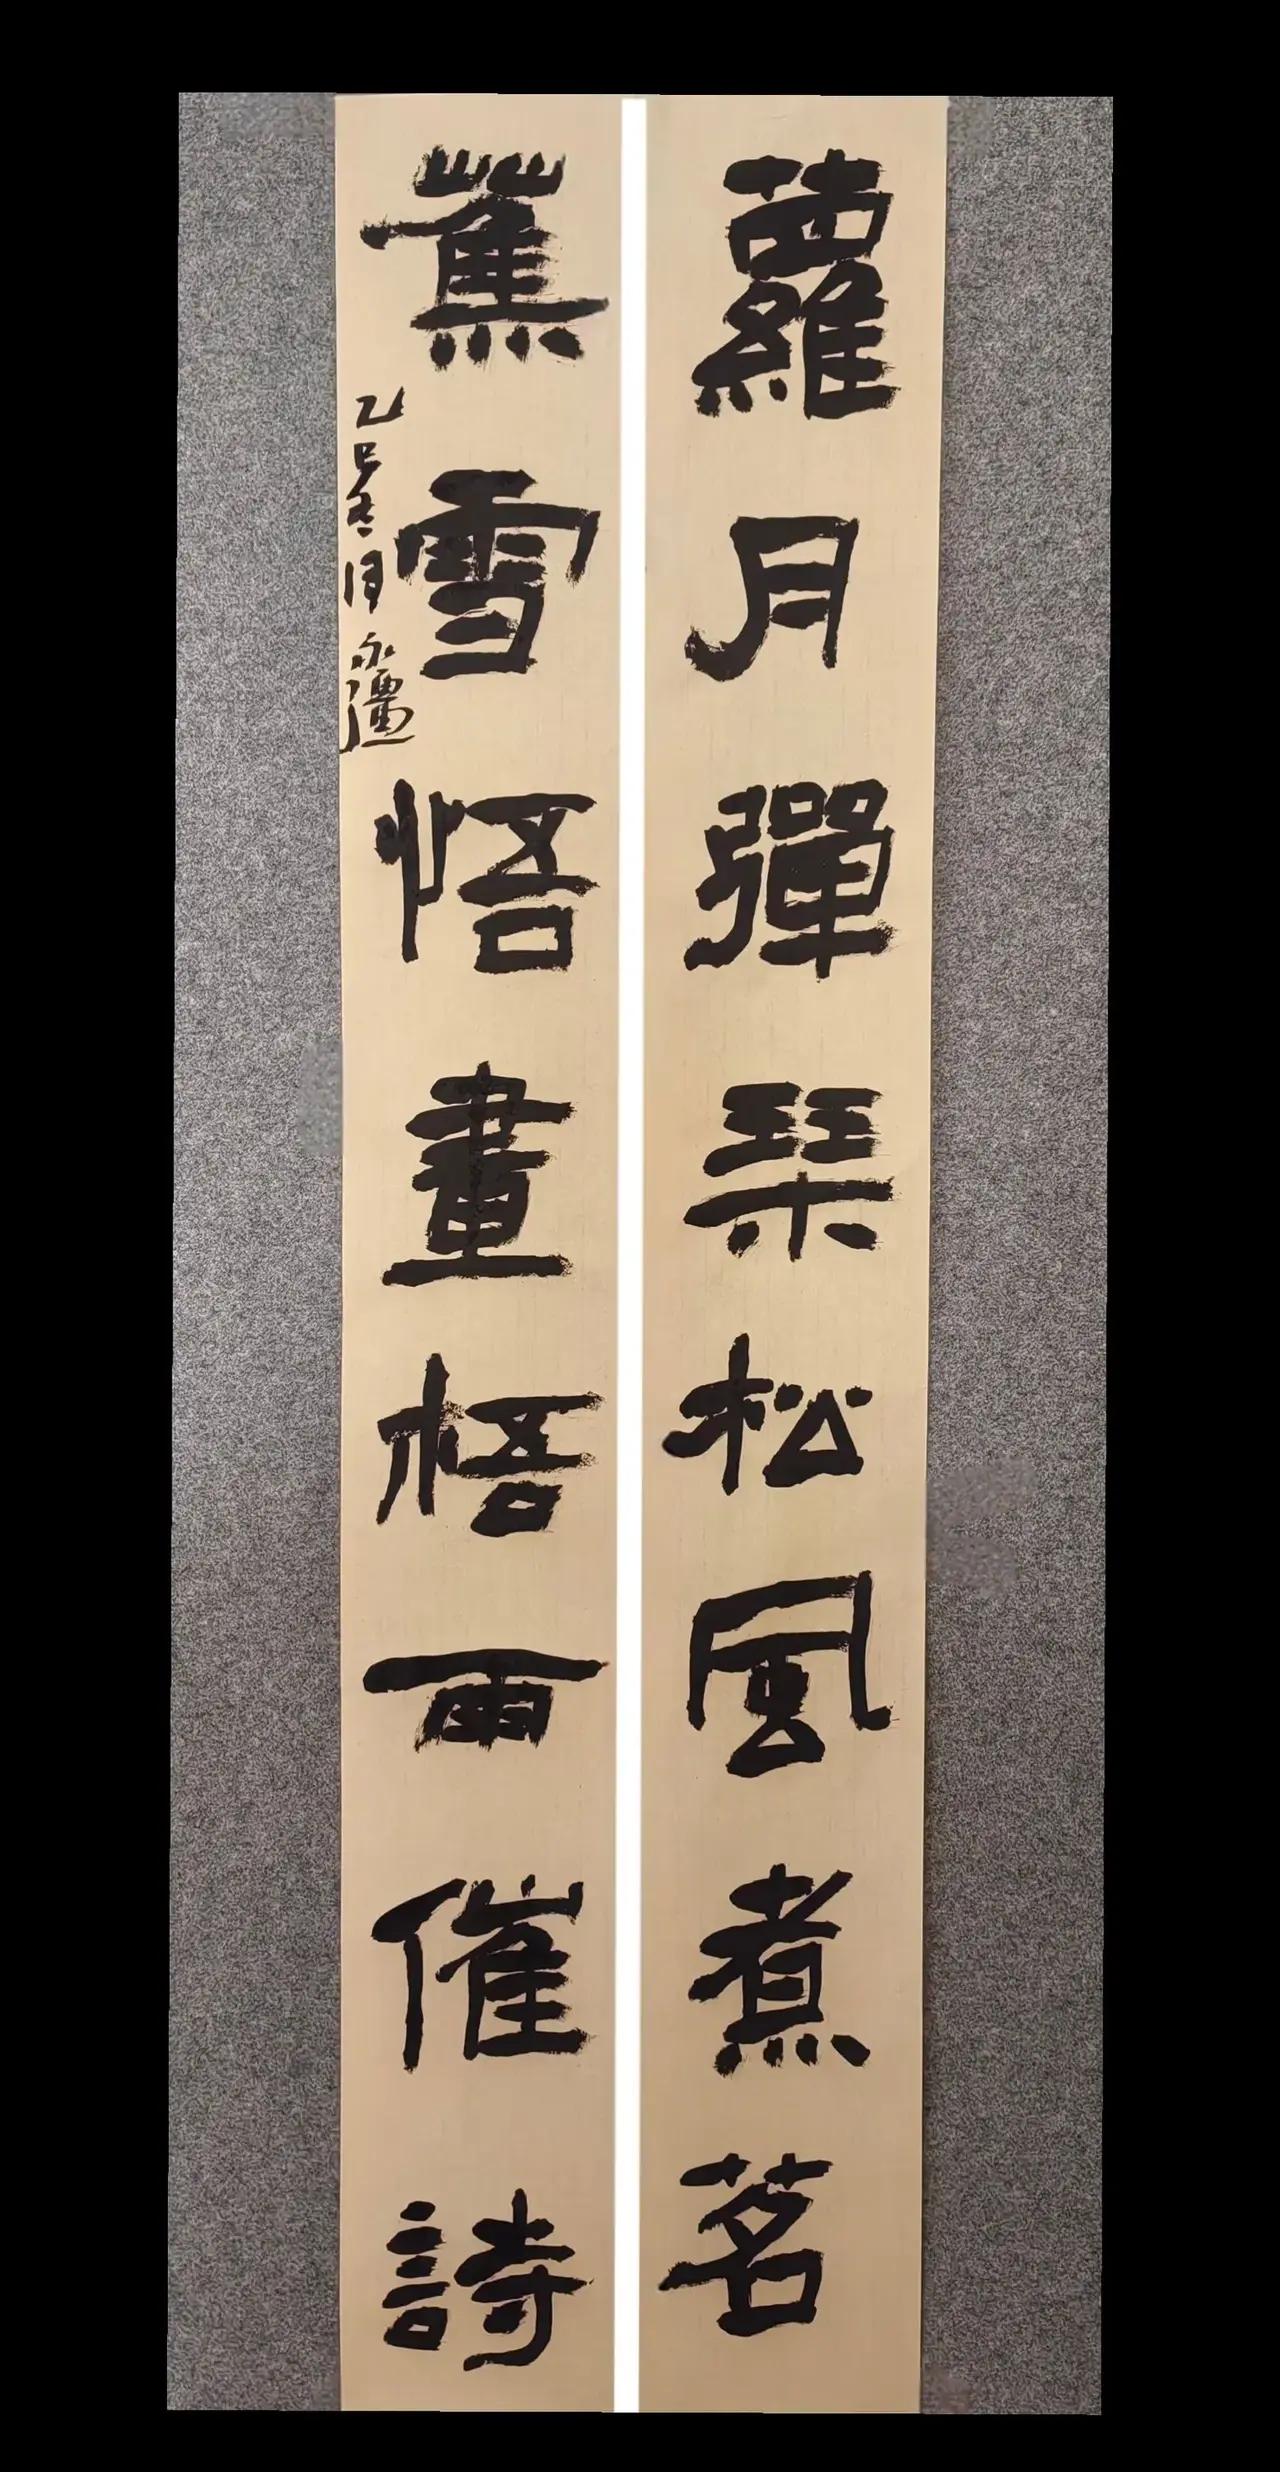 蘿月彈琴松風煮茗
蕉雪悟畫梧雨催詩
乙巳冬月永疆